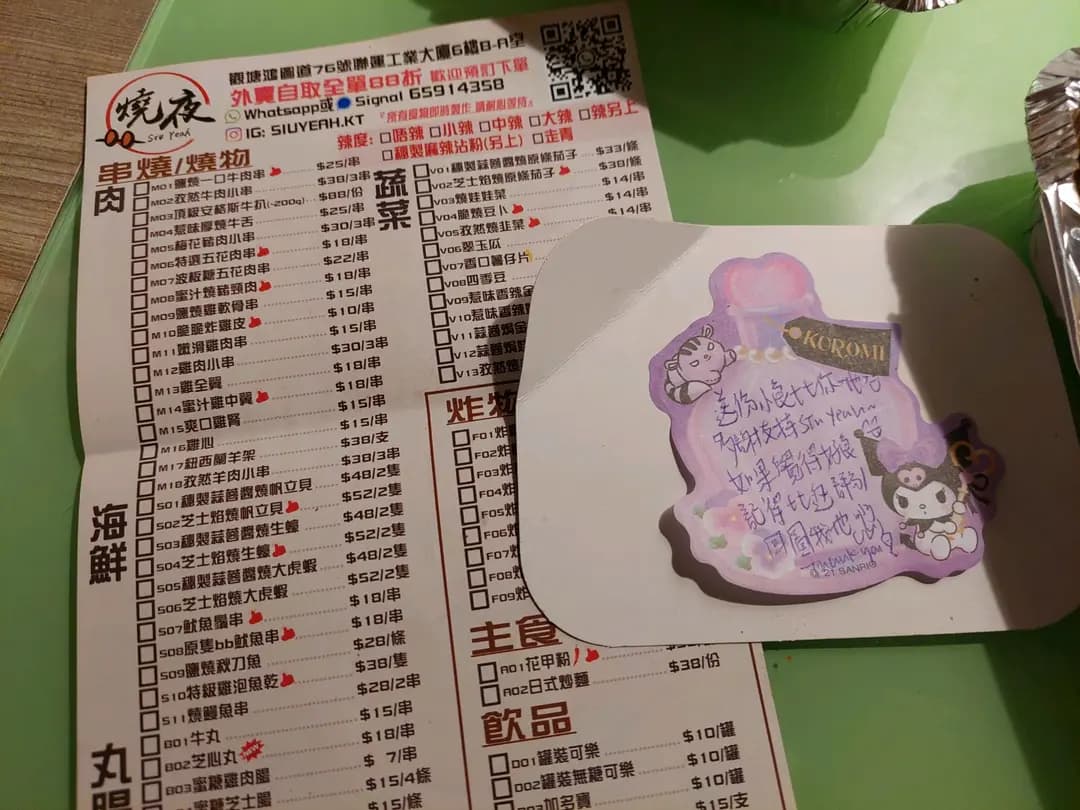 燒夜
Siu Yeah
觀塘鴻圖道76號聯運工業大廈6樓B-A室
外賣自取全單88折 歡迎預訂下單
Whatsapp或 Signal 65914358
IG: SIUYEAH.KT
『所有食物即時製作 請耐心等待』
辣度: □唔辣 □小辣 □中辣 □大辣 □辣另上
□穗製麻辣沾粉(另上) □走青
串燒/燒物
肉
M01鹽燒一口牛肉串 $25/串
M02孜然牛肉小串 $38/3串
M03頂級安格斯牛扒(~200g) $88/份
M04惹味厚燒牛舌 $25/串
M05梅花豬肉小串 $30/3串
M06特選五花肉串 $18/串
M07波板糖五花肉串 $22/串
M08蜜汁燒豬頸肉 $18/串
M09鹽燒雞軟骨串 $15/串
M10脆脆炸雞皮 $10/串
M11嫩滑雞肉串 $15/串
M12雞肉小串 $30/3串
M13雞全翼 $18/串
M14蜜汁雞中翼 $18/串
M15爽口雞腎 $15/串
M16雞心 $15/串
M17紐西蘭羊架 $38/支
M18孜然羊肉小串 $38/3串
海鮮
S01穗製蒜蓉醬燒帆立貝 $48/2隻
S02芝士焰燒帆立貝 $52/2隻
S03穗製蒜蓉醬燒生蠔 $48/2隻
S04芝士焰燒生蠔 $52/2隻
S05穗製蒜蓉醬燒大虎蝦 $48/2隻
S06芝士焰燒大虎蝦 $52/2隻
S07魷魚鬚串 $18/串
S08原隻bb魷魚串 $18/串
S09鹽燒秋刀魚 $28/條
S10特級雞泡魚乾 $38/隻
S11燒鰻魚串 $28/2串
丸
B01牛丸 $15/串
B02芝心丸 NEW $18/串
B03蜜糖雞肉腸 $ 7/串
蜜糖芝士腸 $15/4條
蔬菜
V01穗製蒜蓉醬燒原條茄子 $33/條
V02芝士焰燒原條茄子 $38/條
V03燒娃娃菜 $14/串
V04脆燒豆卜 $14/串
V05孜然燒韭菜 $14/串
V06翠玉瓜
V07香口薯仔片
V08四季豆
V09惹味香辣金
V10惹味香辣
V11蒜蓉焗金
V12蒜蓉焗
V13孜然燒
炸物
F01炸
F02炸
F03炸
F04炸
F05炸
F06炸
F07炸
F08炸
F09炸
主食
A01花甲粉
A02日式炒麵 $38/份
飲品
D01罐裝可樂 $10/罐
D02罐裝無糖可樂 $10/罐
D03加多寶 $10/罐
$15/支
KUROMI
送你小食比你地呀
多謝支持Siu Yeah~
如果覺得好食
記得比返評分/
同圖我地
Thank you
© '21 SANRIO